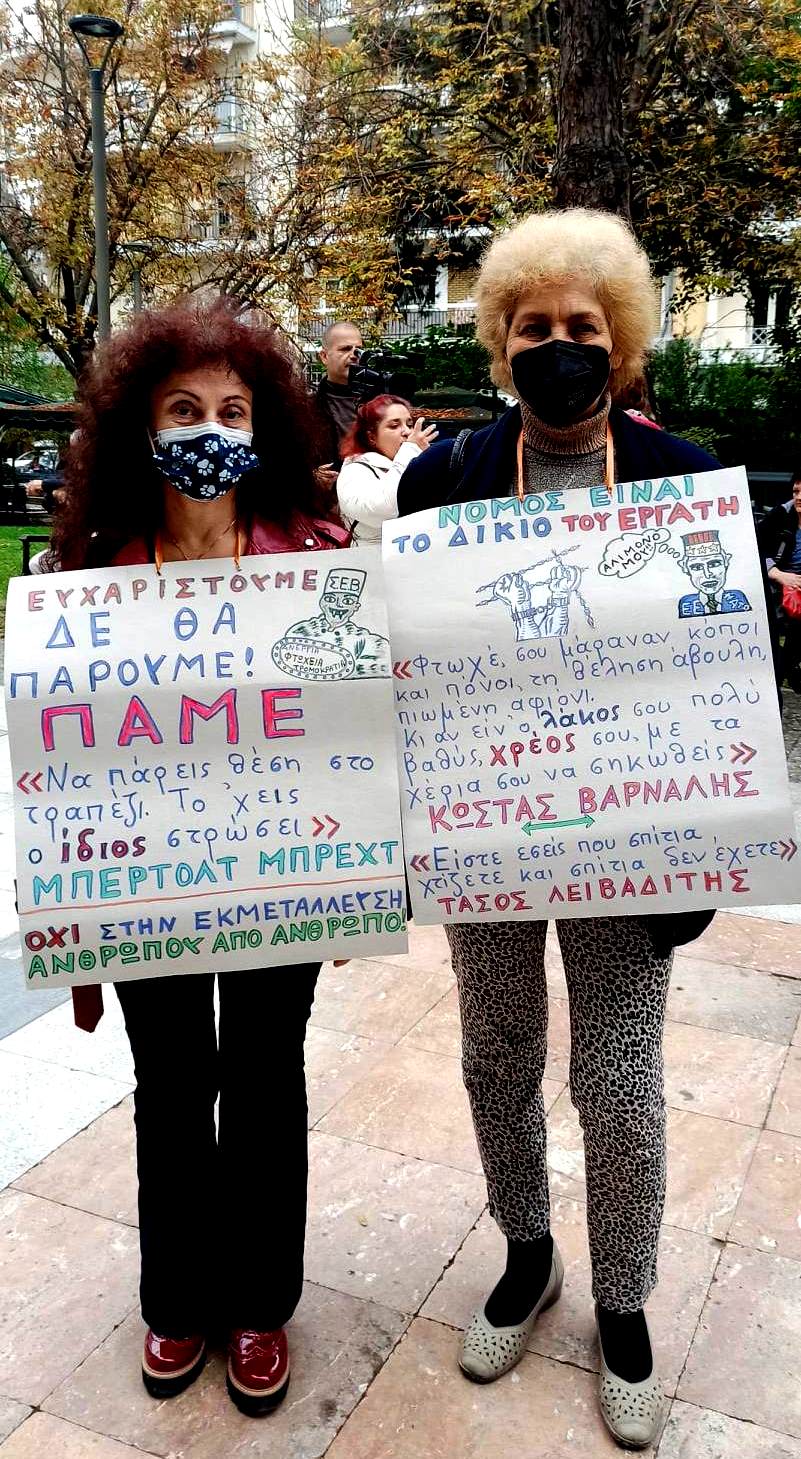 ΕΥΧΑΡΙΣΤΟΥΜΕ
ΔΕ ΘΑ
ΠΑΡΟΥΜΕ!
ΣΕΒ
ΑΝΕΡΓΙΑ
ΦΤΩΧΕΙΑ
ΤΡΟΜΟΚΡΑΤΙΑ
ΠΑΜΕ
«Να πάρεις θέση στο
τραπέζι. Το 'χεις
ο ίδιος στρώσει»
ΜΠΕΡΤΟΛΤ ΜΠΡΕΧΤ
ΟΧΙ ΣΤΗΝ ΕΚΜΕΤΑΛΛΕΥΣΗ
ΑΝΘΡΩΠΟΥ ΑΠΟ ΑΝΘΡΩΠΟ!
ΝΟΜΟΣ ΕΙΝΑΙ
ΤΟ ΔΙΚΙΟ ΤΟΥ ΕΡΓΑΤΗ
ΑΛΙΜΟΝΟ
ΜΟΥ!!
«Φτωχέ, σου μάραναν κόποι
και πόνοι, τη θέληση άβουλη,
πιωμένη αφιόνι.
Κι αν είν' ο λάκος σου πολύ
βαθύς, χρέος σου, με τα
χέρια σου να σηκωθείς»
ΚΩΣΤΑΣ ΒΑΡΝΑΛΗΣ
«Είστε εσείς που σπίτια
χτίζετε και σπίτια δεν έχετε»
ΤΑΣΟΣ ΛΕΙΒΑΔΙΤΗΣ